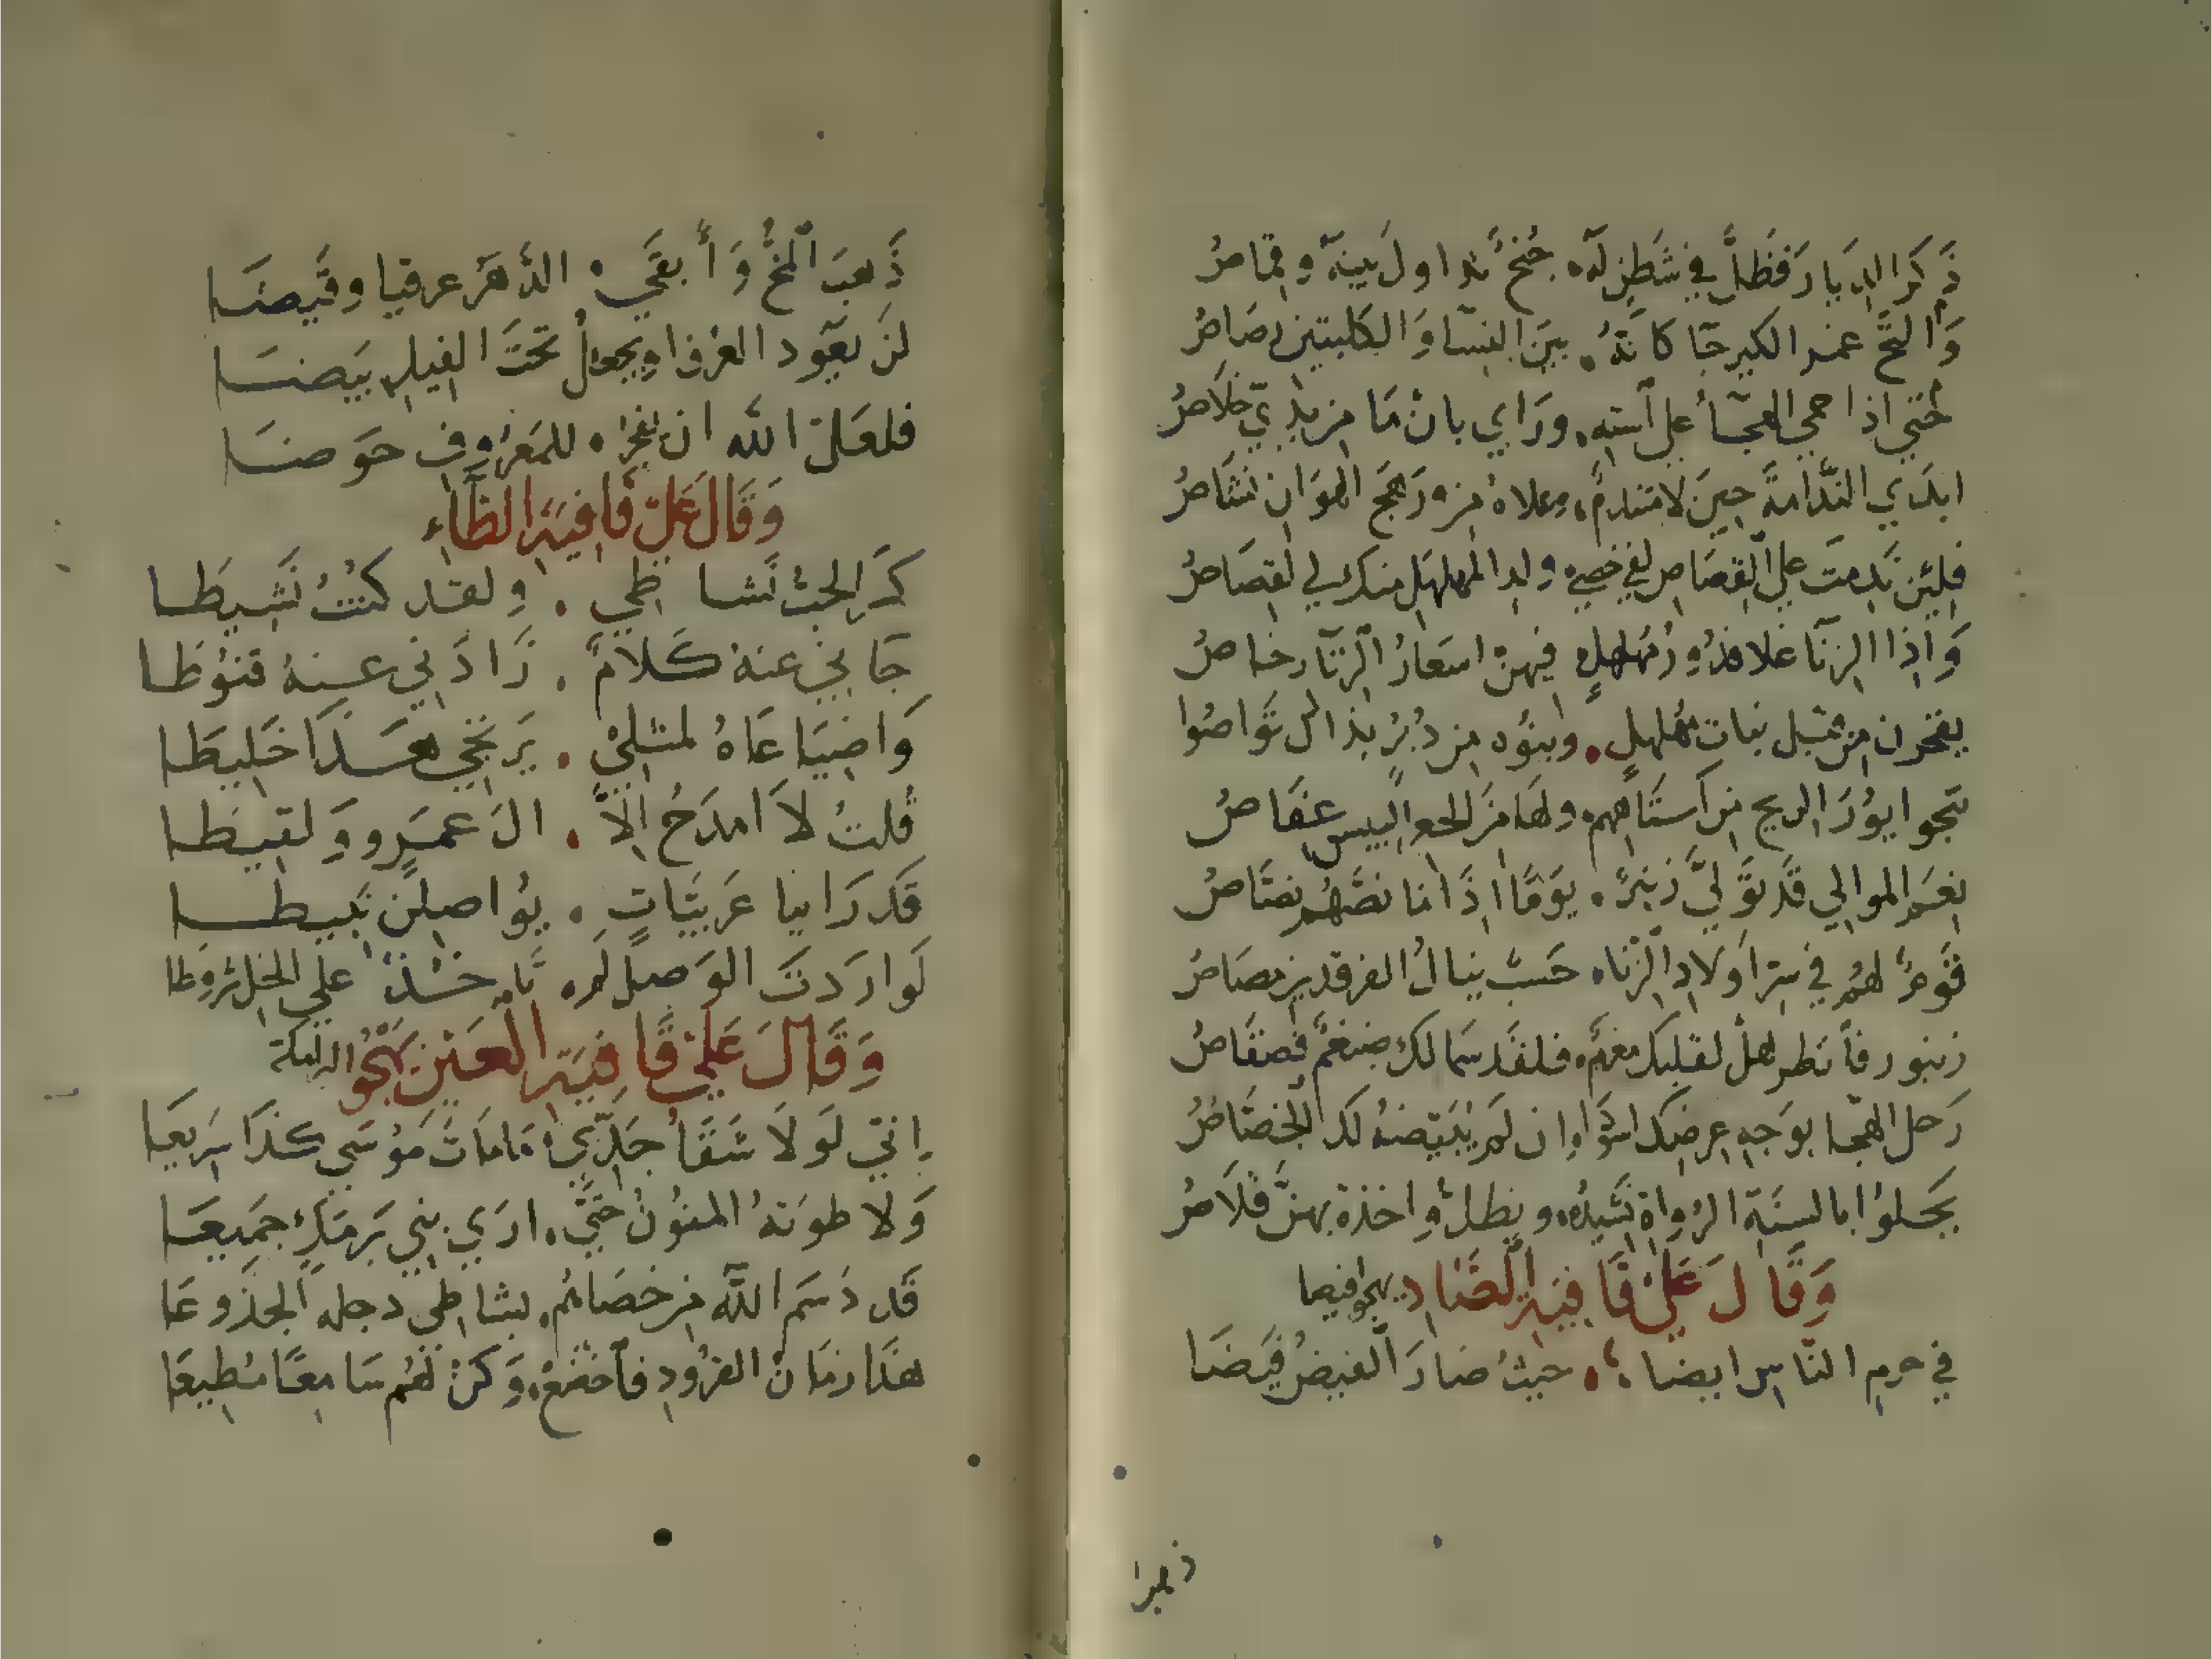 ذكر الديار فظل في شطن له جنح تداول بينه وقماص
والتح عند الكير حتا كانه بين النسا والكلبتين رصاص
حتى اذا حمي الهجاء على استه وراي بان ما من يدي خلاص
ابدي الندامة حين لا متندم وعلاه من رهج الهوان نشاص
فلئن ندمت على القصاص لفي خصي ولد المهلهل منك لي لقصاص
واذا الزنا غلا فدور مهلهل فيهن اسعار الزنا رخاص
يفخرن من قبل بنات مهلهل وبنوه من دبر بذاك تواصوا
نعم الموالي قد تولي زنبر يوما اذا ما نصهم نصاص
قوم لهم في سر اولاد الزنا حسب ينال الفرقدين مصاص
زنبور فانظر هل لقلبك مغم فلقد سما لك ضيغم قصقاص
رحل الهجا بوجه عرضك اسودا وان لم يبيضنه لك الجصاص
يجلو بالسنة الرواة نشيده ويظل واخذة بهن قلاص
وقال علي قافية الضاد يهجو فيها
في حرم الناس ايضا حيث صار الغيض فيضا
ذهب
ذهب المخ وأبقى الدهر عرقيا وقيضا
لن يعود العرف او يجعل تحت الفيل بيضا
فلعل الله ان يفجر للمعروف حوضا
وقال علي قافية الطاء
كدر الحب نشاطي ولقد كنت نشيطا
جاني عنه كلام زادني عنه قنوطا
واضيا عاه لمثلي يرتجي هذا خليطا
قلت لا امدح الا ال عمرو ولقيطا
قد راينا عربيات يواصلن نبيطا
لو اردت الوصل لم تاخذ على الخل شروطا
وقال علي قافية العين يهجو البرامكة
إني لولا شقا جدي مامات موسى كذا سريعا
ولا طوته المنون حتى ارى بني برمك جميعا
قد دسم الله من خصاهم بشاطي دجلة الجذوعا
هذا زمان القرود فاخضع وكن لهم سامعا مطيعا